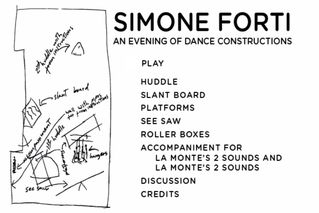 SIMONE FORTI
AN EVENING OF DANCE CONSTRUCTIONS
PLAY
HUDDLE
SLANT BOARD
PLATFORMS
SEE SAW
ROLLER BOXES
ACCOMPANIMENT FOR
LA MONTE'S 2 SOUNDS AND
LA MONTE'S 2 SOUNDS
DISCUSSION
CREDITS
slant board
huddle
hangers
see saw